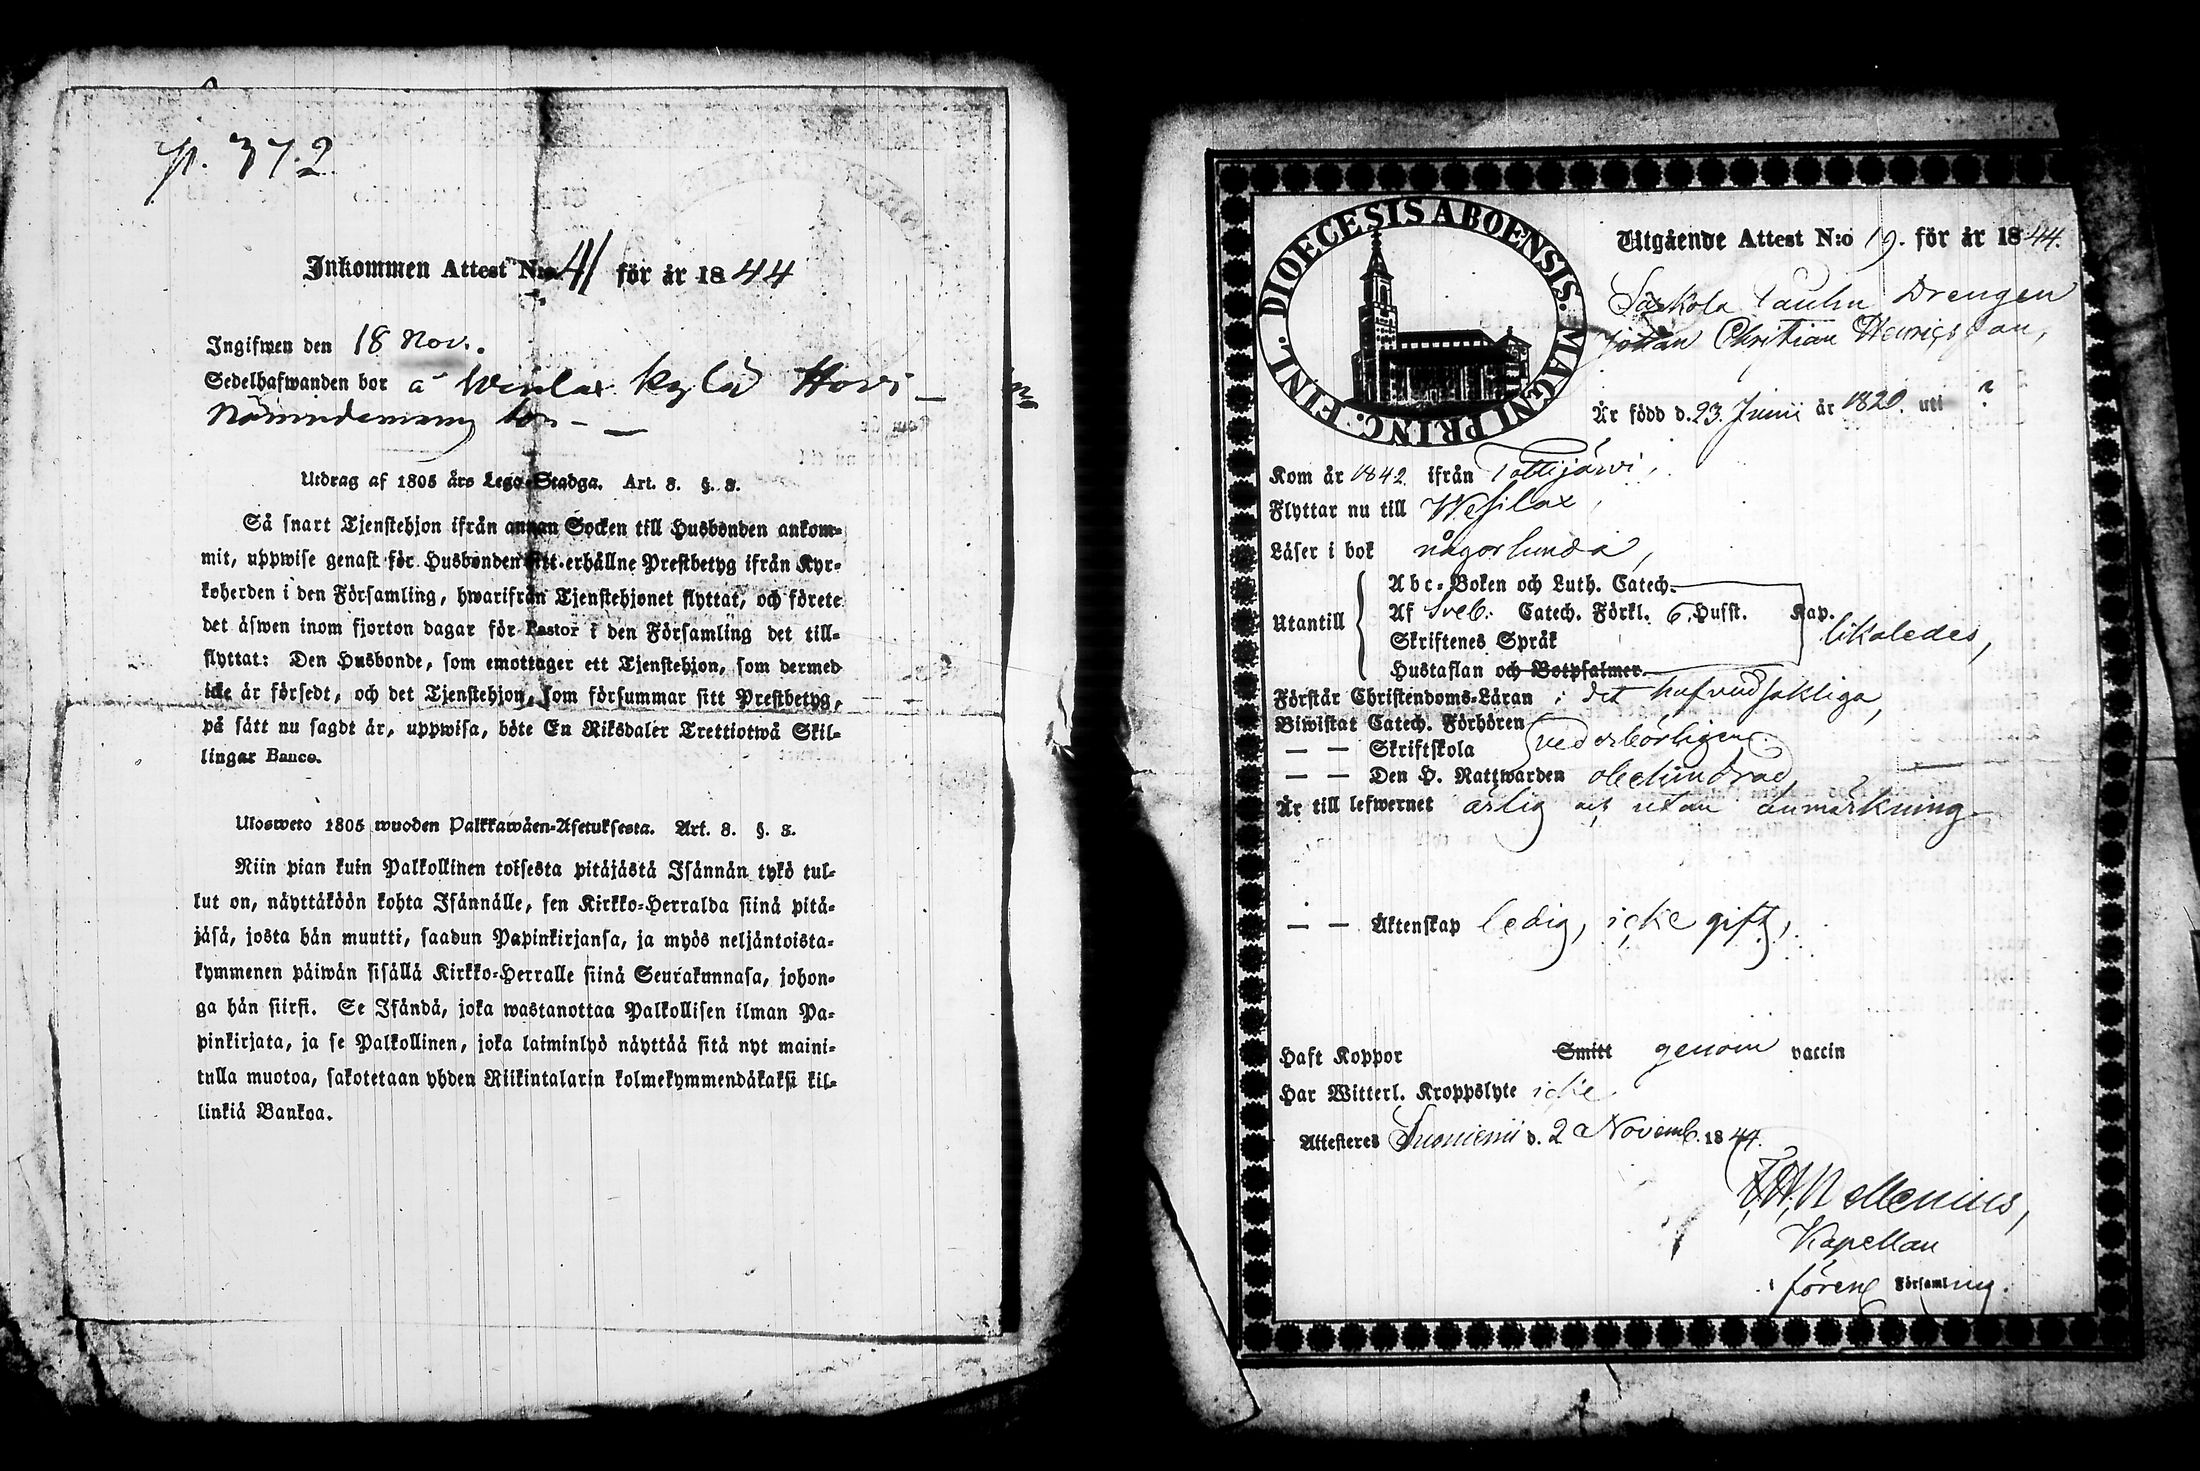 p. 372.
Inkommen Attest N:o 41 för år 1844
Ingifwen den 18 Nov.
Sedelhafwanden bor å kylä Hovi
Nämndemans
Utdrag af 1805 års Lego-Stadga. Art. 8. §. 8.
Så snart Tjenstehjon ifrån annan Socken till Husbonden ankom-
mit, uppwise genast för Husbonden sitt erhållne Prestbetyg ifrån Kyr-
koherden i den Församling, hwarifrån Tjenstehjonet flyttat, och förete
det äfwen inom fjorton dagar för Pastor i den Församling det till-
flyttat: Den Husbonde, som emottager ett Tjenstehjon, som dermed
icke är försedt, och det Tjenstehjon, som försummar sitt Prestbetyg,
på sätt nu sagdt är, uppwisa, böte En Riksdaler Trettiotwå Skil-
lingar Banco.
Ulosweto 1805 wuoden Palkkawäen-Asetuksesta. Art. 8. §. 8.
Niin pian kuin Palkollinen toisesta pitäjästä Isännän tykö tul-
lut on, näyttäköön kohta Isännälle, sen Kirkko-Herralda siinä pitä-
jäsä, josta hän muutti, saadun Papinkirjansa, ja myös neljäntoista-
kymmenen päiwän sisällä Kirkko-Herralle siinä Seurakunnasa, johon-
ga hän siirsi. Se Isändä, joka wastanottaa Palkollisen ilman Pa-
pinkirjata, ja se Palkollinen, joka laiminlyö näyttää sitä nyt maini-
tulla muotoa, sakotetaan yhden Riikintalarin kolmekymmendäkaksi kil-
linkiä Bankoa.
DIOECESIS ABOENSIS. MAGNI PRINC. FINL.
Utgående Attest N:o 19. för år 1844.
Drengen
Johan Christian Henricsson,
Är född d. 23. Junii år 1820. uti ?
Kom år 1842 ifrån Tottijärvi,
Flyttar nu till Wesilax,
Läser i bok någorlunda,
Utantill
Abc-Boken och Luth. Catech.
Af Sveb: Catech. Förkl. 6. Husst. Kap.
Skriftenes Språk
Hustaflan och Botpsalmer
likaledes,
Förstår Christendoms-Läran i det hufvudsakliga,
Biwistat Catech. Förhören
— — Skriftskola vederbörligen
— — Den H. Nattwarden obehindrad,
Är till lefwernet ärlig och utan anmärkning
— — Äktenskap ledig, icke gift,
Haft Koppor Smitt genom vaccin
Har Witterl. Kroppslyte icke
Attesteres Suoniemi d. 2 Novemb. 1844.
Kapellan
i föreng Församling.